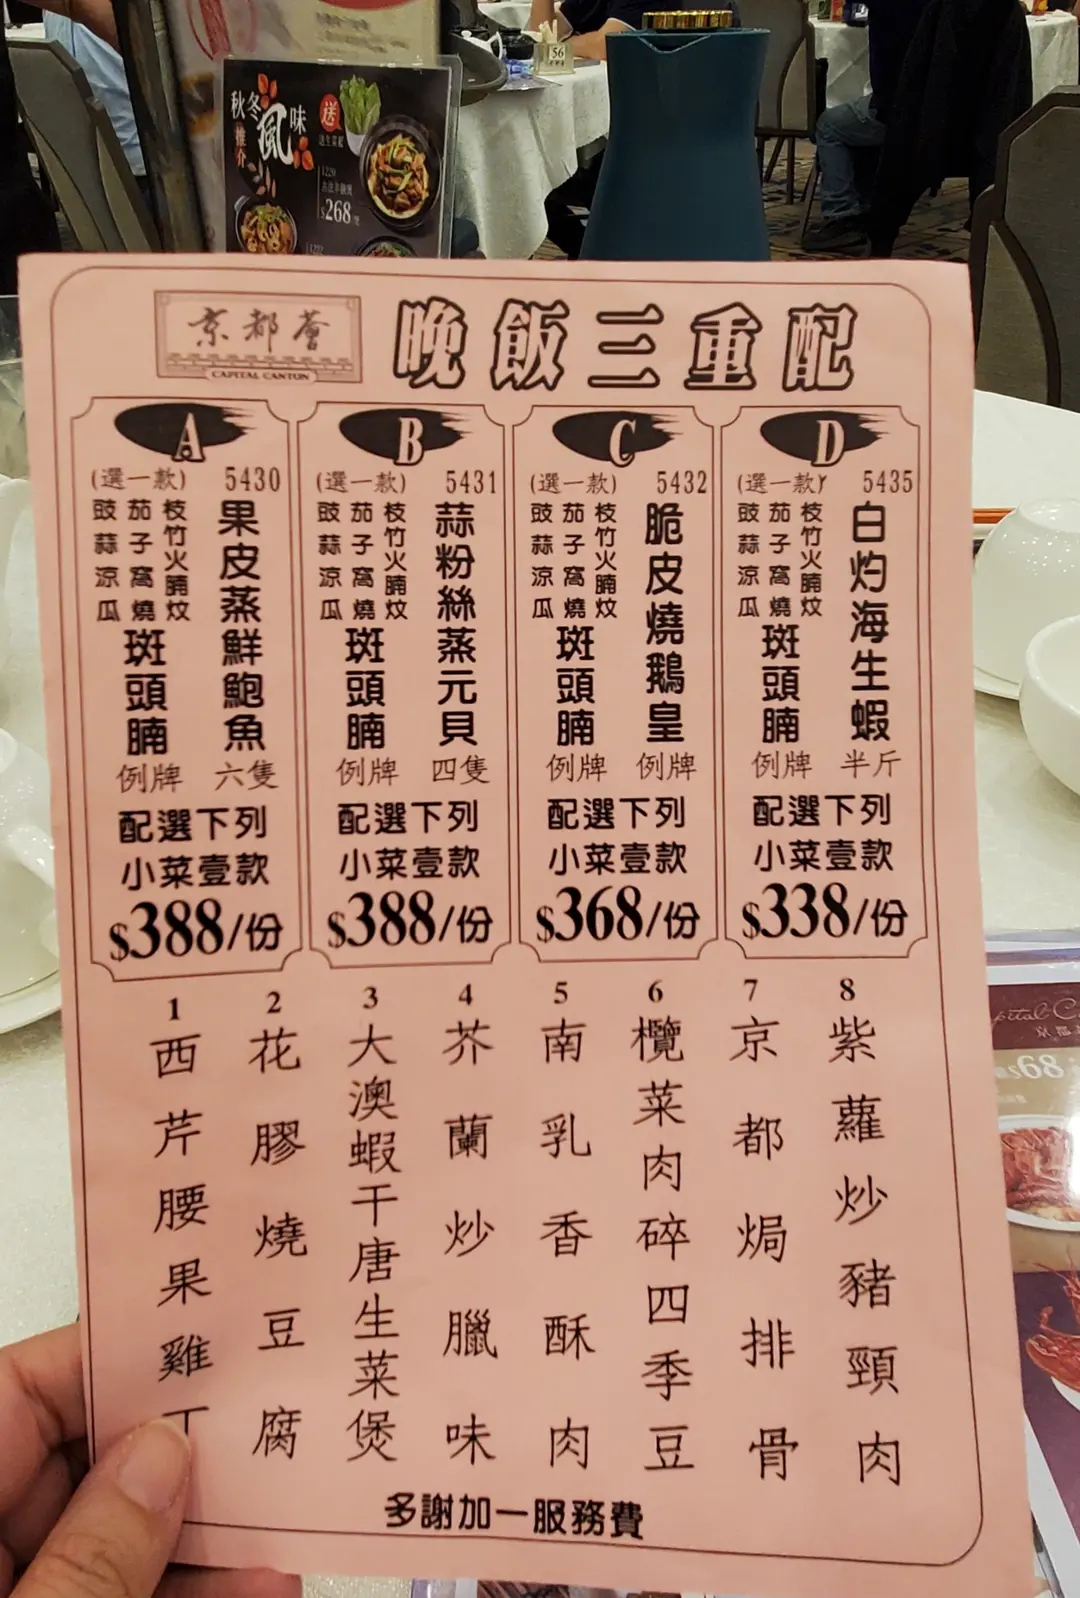 秋冬
風味
推介
送
1220
$268
56
京都薈
CAPITAL CANTON
晚飯三重配
A
(選一款) 5430
果皮蒸鮮鮑魚
六隻
枝竹火腩炆
茄子窩燒
豉蒜涼瓜
斑頭腩
例牌
配選下列
小菜壹款
$388/份
B
(選一款) 5431
蒜粉絲蒸元貝
四隻
枝竹火腩炆
茄子窩燒
豉蒜涼瓜
斑頭腩
例牌
配選下列
小菜壹款
$388/份
C
(選一款) 5432
脆皮燒鵝皇
例牌
枝竹火腩炆
茄子窩燒
豉蒜涼瓜
斑頭腩
例牌
配選下列
小菜壹款
$368/份
D
(選一款) 5435
白灼海生蝦
半斤
枝竹火腩炆
茄子窩燒
豉蒜涼瓜
斑頭腩
例牌
配選下列
小菜壹款
$338/份
1
西芹腰果雞丁
2
花膠燒豆腐
3
大澳蝦干唐生菜煲
4
芥蘭炒臘味
5
南乳香酥肉
6
欖菜肉碎四季豆
7
京都焗排骨
8
紫蘿炒豬頸肉
多謝加一服務費